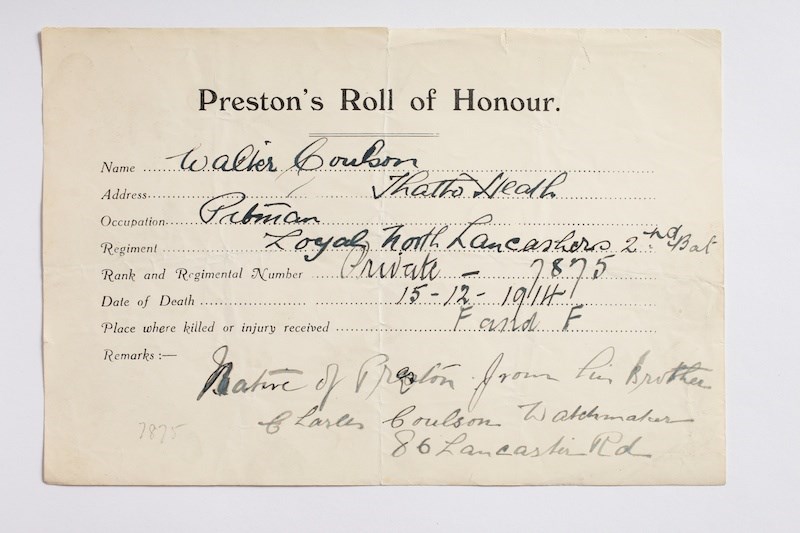 Preston's Roll of Honour.
Name Walter Coulson
Address Thatto Heath
Occupation Pitman
Regiment Loyal North Lancashers 2nd Bat
Rank and Regimental Number Private - 7875
Date of Death 15-12-1914
Place where killed or injury received F and F
Remarks:—
Native of Preston from his Brother
Charles Coulson Watchmaker
86 Lancaster Rd
7875